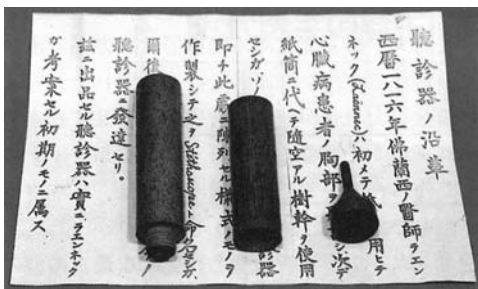 聽診器ノ沿革
西曆一八一六年佛蘭西ノ醫師ラエン
ネック(Laënnec)ハ初メテ紙 用ヒテ
心臟病患者ノ胸部ヲ シ次デ
紙筒ニ代ヘテ隨空アル樹幹ヲ使用
セシガ 診器
即チ此處ニ陳列セル樣式ノモノヲ
作製シテ之ヲStethoscopeト命名セシガ
爾後
聽診器ニ發達セリ。
玆ニ出品セル聽診器ハ實ニラエンネック
ガ考案セル初期ノモノニ属ス